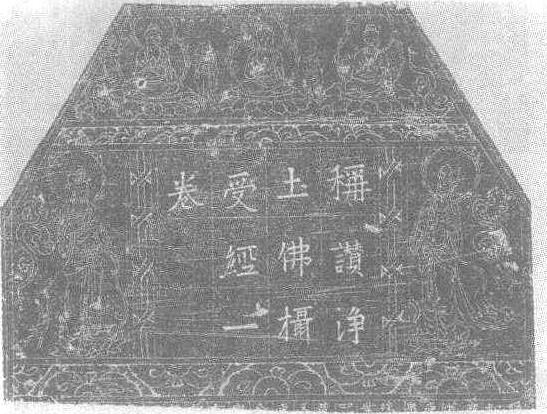 稱讚淨
土佛攝
受經一
卷